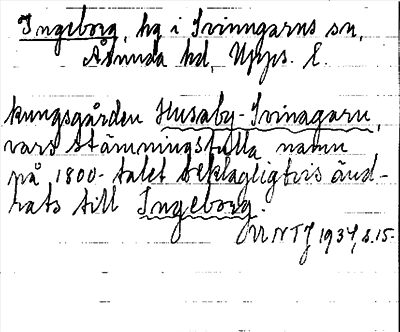 Ingeborg, hg i Svinngarns sn,
Åsunda hd, Upps. l.
kungsgården Husaby-Svinagarn,
vars stämningsfulla namn
på 1800-talet beklagligtvis änd-
rats till Ingeborg.
UNTJ 1934, s. 15.